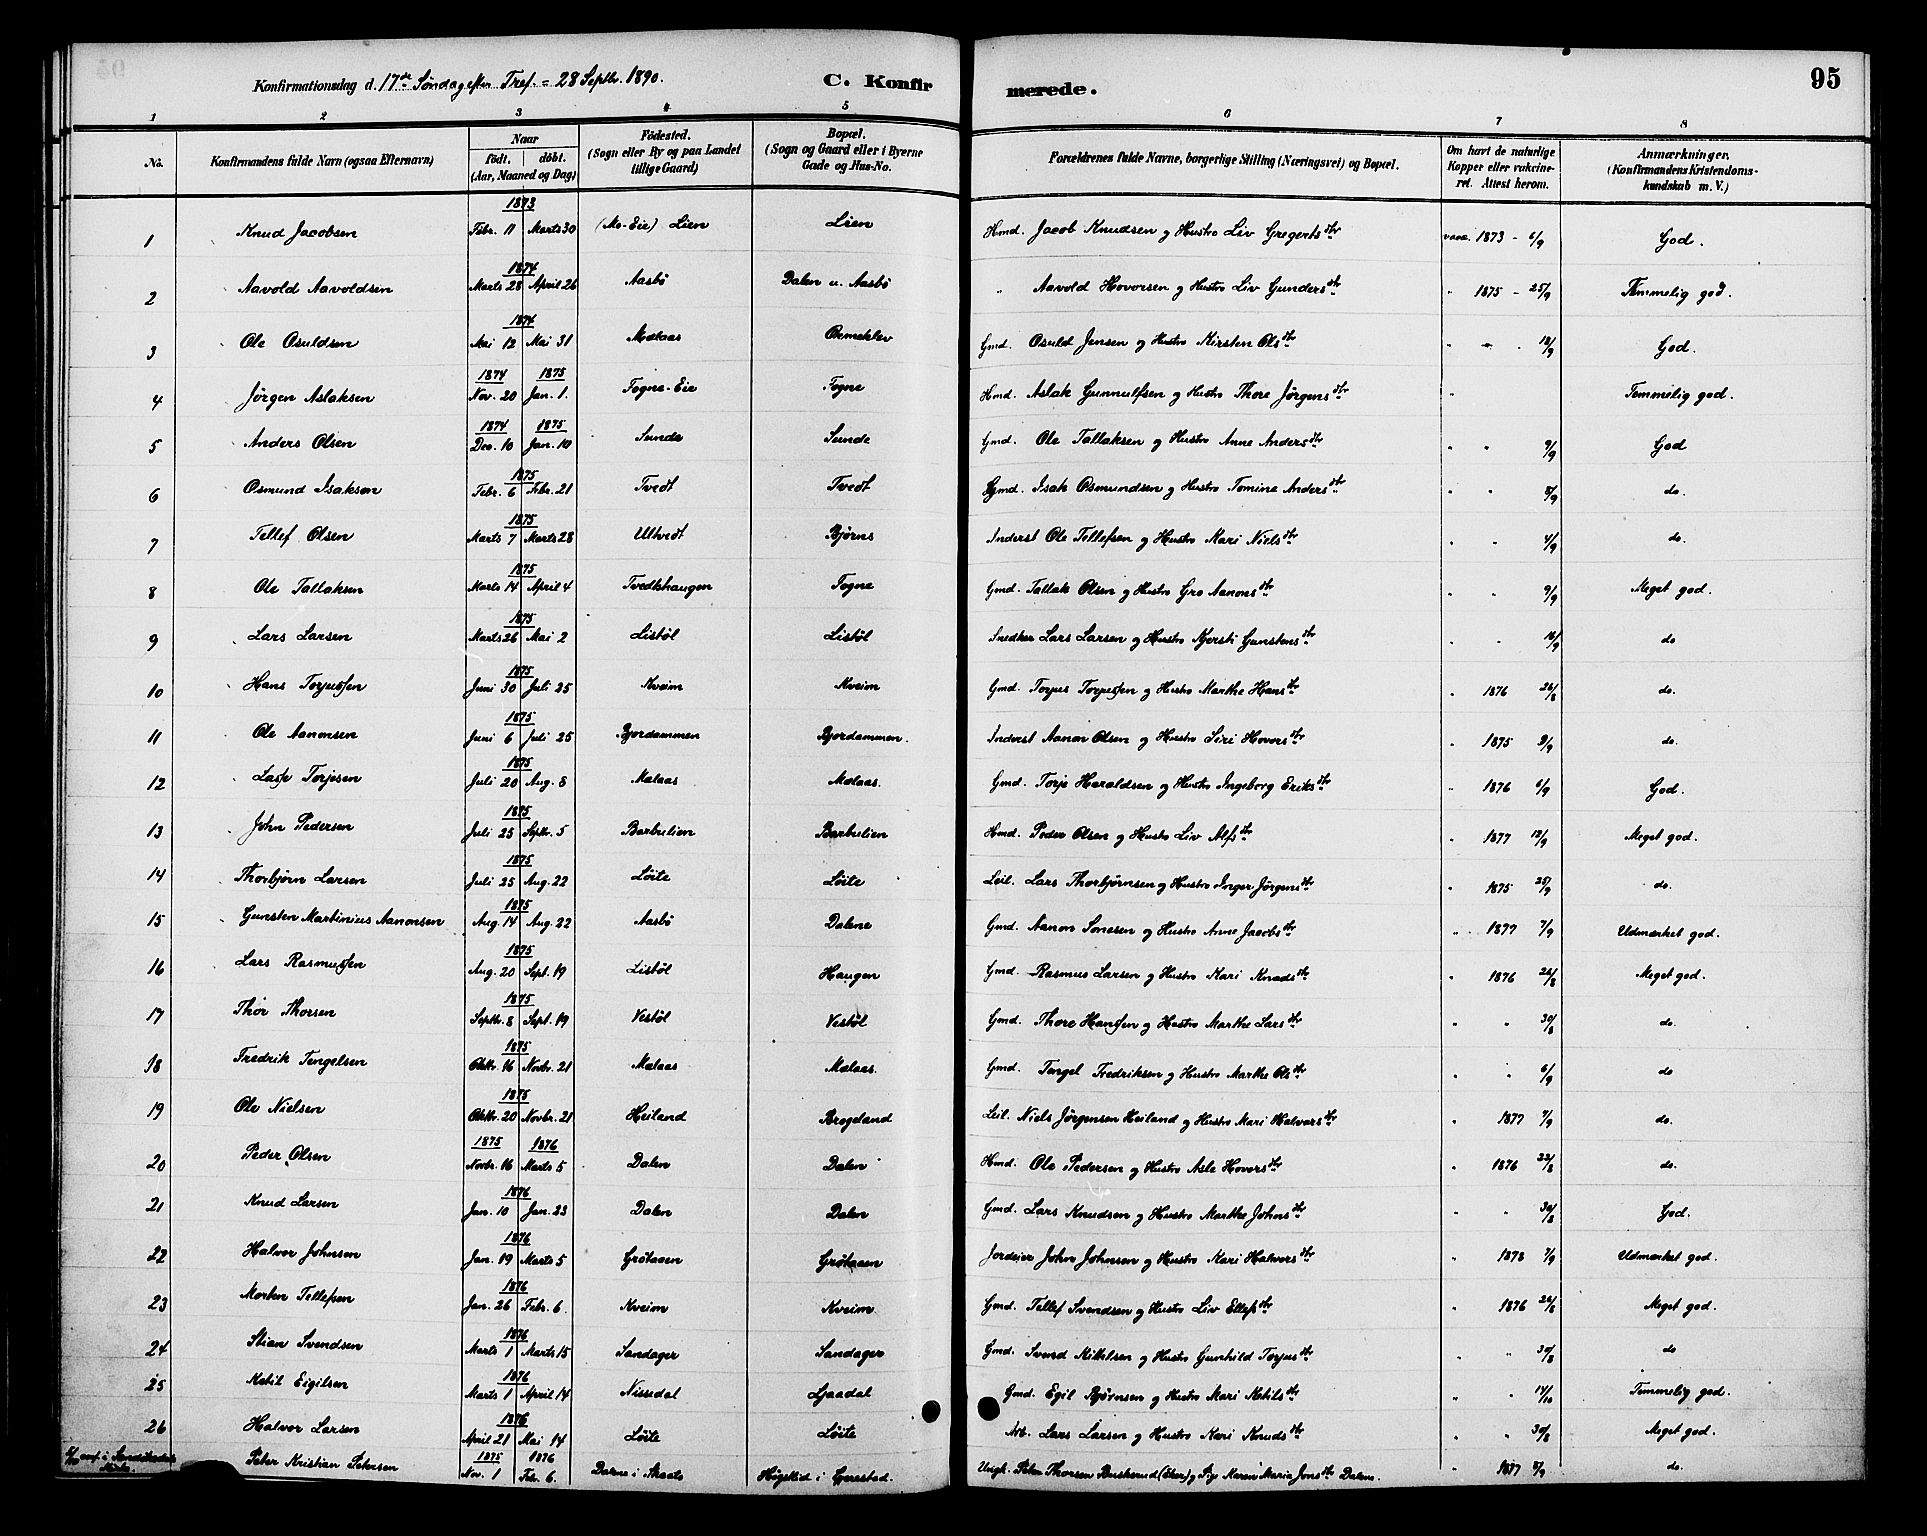 95
Konfirmationsdag d. 17de Søndag efter Tref. = 28 Septbr. 1890. C. Konfirmerede.
1 2 3 4 5 6 7 8
No. Konfirmandens fulde Navn (ogsaa Efternavn) Naar født, døbt. (Aar, Maaned og Dag) Födested. (Sogn eller By og paa Landet tillige Gaard) Bopæl. (Sogn og Gaard eller i Byerne Gade og Hus-No. Forældrenes fulde Navne, borgerlige Stilling (Næringsvei) og Bopæl. Om havt de naturlige Kopper eller vakcineret. Attest herom. Anmærkninger. (Konfirmandens Kristendomskundskab m. V.)
1 Knud Jacobsen 1873 Febr. 11 Marts 30 (Mo-Eie) Lien Lien Hmd. Jacob Knudsen og Hustro Liv Gregertsdtr vacc. 1873 - 6/9 God.
2 Aavold Aavoldsen 1874 Marts 28 April 26 Aasbø Dalen u. Aasbø " Aavold Hovorsen og Hustro Liv Gundersdtr " 1875 - 25/9 Temmelig god.
3 Ole Osuldsen 1874 Mai 12 Mai 31 Mælaas Ormeklev Gmd. Osuld Jensen og Hustro Kirsten Olsdtr " " " 18/9 God.
4 Jørgen Aslaksen 1874 Nov. 20 1875 Jan. 1. Fogne-Eie Fogne Hmd. Aslak Gunnulfsen og Hustro Thore Jørgensdtr " Temmelig god.
5 Anders Olsen 1874 Dec. 10 1875 Jan. 10 Sunde Sunde Gmd. Ole Tallaksen og Hustro Anne Andersdtr " " 9/9 God
6 Osmund Isaksen 1875 Febr. 6 Febr. 21 Tvedt Tvedt Gmd. Isak Osmundsen og Hustro Tomine Andersdtr " " 8/9 do.
7 Tellef Olsen 1875 Marts 7 Marts 28 Ultvedt Bjørns Inderst Ole Tellefsen og Hustro Mari Nielsdtr " " 4/9 do.
8 Ole Tallaksen 1875 Marts 14 April 4 Tvedthaugen Fogne Gmd. Tallak Olsen og Hustro Gro Aanonsdtr " " 9/9 Meget god.
9 Lars Larsen 1875 Marts 26 Mai 2 Listøl Listøl Snedker Lars Larsen og Hustro Kjersti Gunstensdtr " " 18/9 do
10 Hans Torjussen 1875 Juni 30 Juli 25 Kveim Kveim Gmd. Torjus Torjussen og Hustro Marthe Hansdtr " 1876 26/8 do.
11 Ole Aanonsen 1875 Juni 6 Juli 25 Bjordammen Bjordammen. Inderst Aanon Olsen og Hustro Siri Hovorsdtr " 1875 9/9 do.
12 Lasse Torjesen 1875 Juli 20 Aug. 8 Mælaas Mælaas. Gmd. Torje Haraldsen og Hustro Ingeborg Eriksdtr " 1876 6/9 God.
13 John Pedersen 1875 Juli 25 Septbr. 5 Barbulien Barbulien Hmd. Peder Olsen og Hustro Liv Alfsdtr " 1877 12/9 Meget god.
14 Thorbjørn Larsen 1875 Juli 25 Aug. 22 Løite Løite Leil. Lars Thorbjørnsen og Hustro Inger Jørgensdtr " 1875 25/9 do.
15 Gunsten Martinius Aanonsen 1875 Aug. 14 Aug. 22 Aasbø Dalene Gmd. Aanon Sonesen og Hustro Anne Jacobsdtr " 1877 7/9 Udmærket god.
16 Lars Rasmussen 1875 Aug. 20 Sept. 19 Listøl Haugen Gmd. Rasmus Larsen og Hustro Kari Knudsdtr " 1876 26/8 Meget god.
17 Thor Thorsen 1875 Septbr. 8 Sept. 19 Vestøl Vestøl Gmd. Thore Hansen og Hustro Marthe Larsdtr " " 30/8 do.
18 Fredrik Tengelsen 1875 Oktbr. 16 Novbr. 21 Mælaas Mælaas. Gmd. Tengel Fredriksen og Hustro Marthe Olsdtr " " 6/9 do
19 Ole Nielsen 1875 Oktbr. 20 Novbr. 21 Heiland Brogeland Leil. Niels Jørgensen Heiland og Hustro Mari Halvorsdtr " 1877 7/9 do.
20 Peder Olsen 1875 Novbr. 16 1876 Marts 5 Dalen Dalen Hmd. Ole Pedersen og Hustro Asle Hovorsdtr " 1876 22/8 do.
21 Knud Larsen 1876 Jan. 10 Jan. 23 Dalen Dalen Gmd. Lars Knudsen og Hustro Marthe Johnsdtr " " 30/8 God.
22 Halvor Johnsen 1876 Jan. 19 Marts 5 Grøtaaen Grøtaaen Jordeier John Johnsen og Hustro Kari Halvorsdtr " 1878 7/9 Udmærket god.
23 Morten Tellefsen 1876 Jan. 26 Febr. 6. Kveim Kveim Gmd. Tellef Svendsen og Hustro Liv Ellefsdtr " 1876 26/8 Meget god.
24 Stian Svendsen 1876 Marts 1 Marts 15 Sandager Sandager Gmd. Svend Kittelsen og Hustro Gunhild Torjusdtr " " 30/8 do
25 Ketil Eigilsen 1876 Marts 1 April 14 Nissedal Ljaadal Gmd. Egil Bjørnsen og Hustro Mari Ketilsdtr " " 14/10 Temmelig god.
26 Halvor Larsen 1876 April 21 Mai 14 Løite Løite Arb. Lars Larsen og Hustro Kari Knudsdtr " " 30/8 Meget god.
Peter Kristian Petersen 1875 Nov. 1 1876 Feb. 6. Dørne i Skaatø Høgelid i Gjerstad. Ungk. Peter Thorsen Buskerud og Pige Maren Maria Jonsdtr Dalene. " 1877 8/9 do.